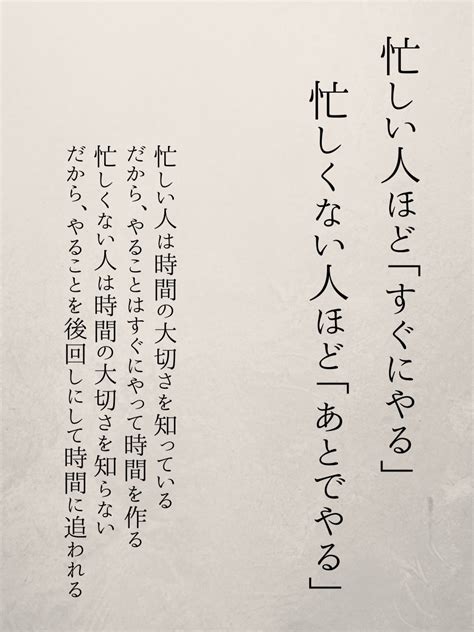 忙しい人ほど「すぐにやる」
忙しくない人ほど「あとでやる」
忙しい人は時間の大切さを知っている
だから、やることはすぐにやって時間を作る
忙しくない人は時間の大切さを知らない
だから、やることを後回しにして時間に追われる